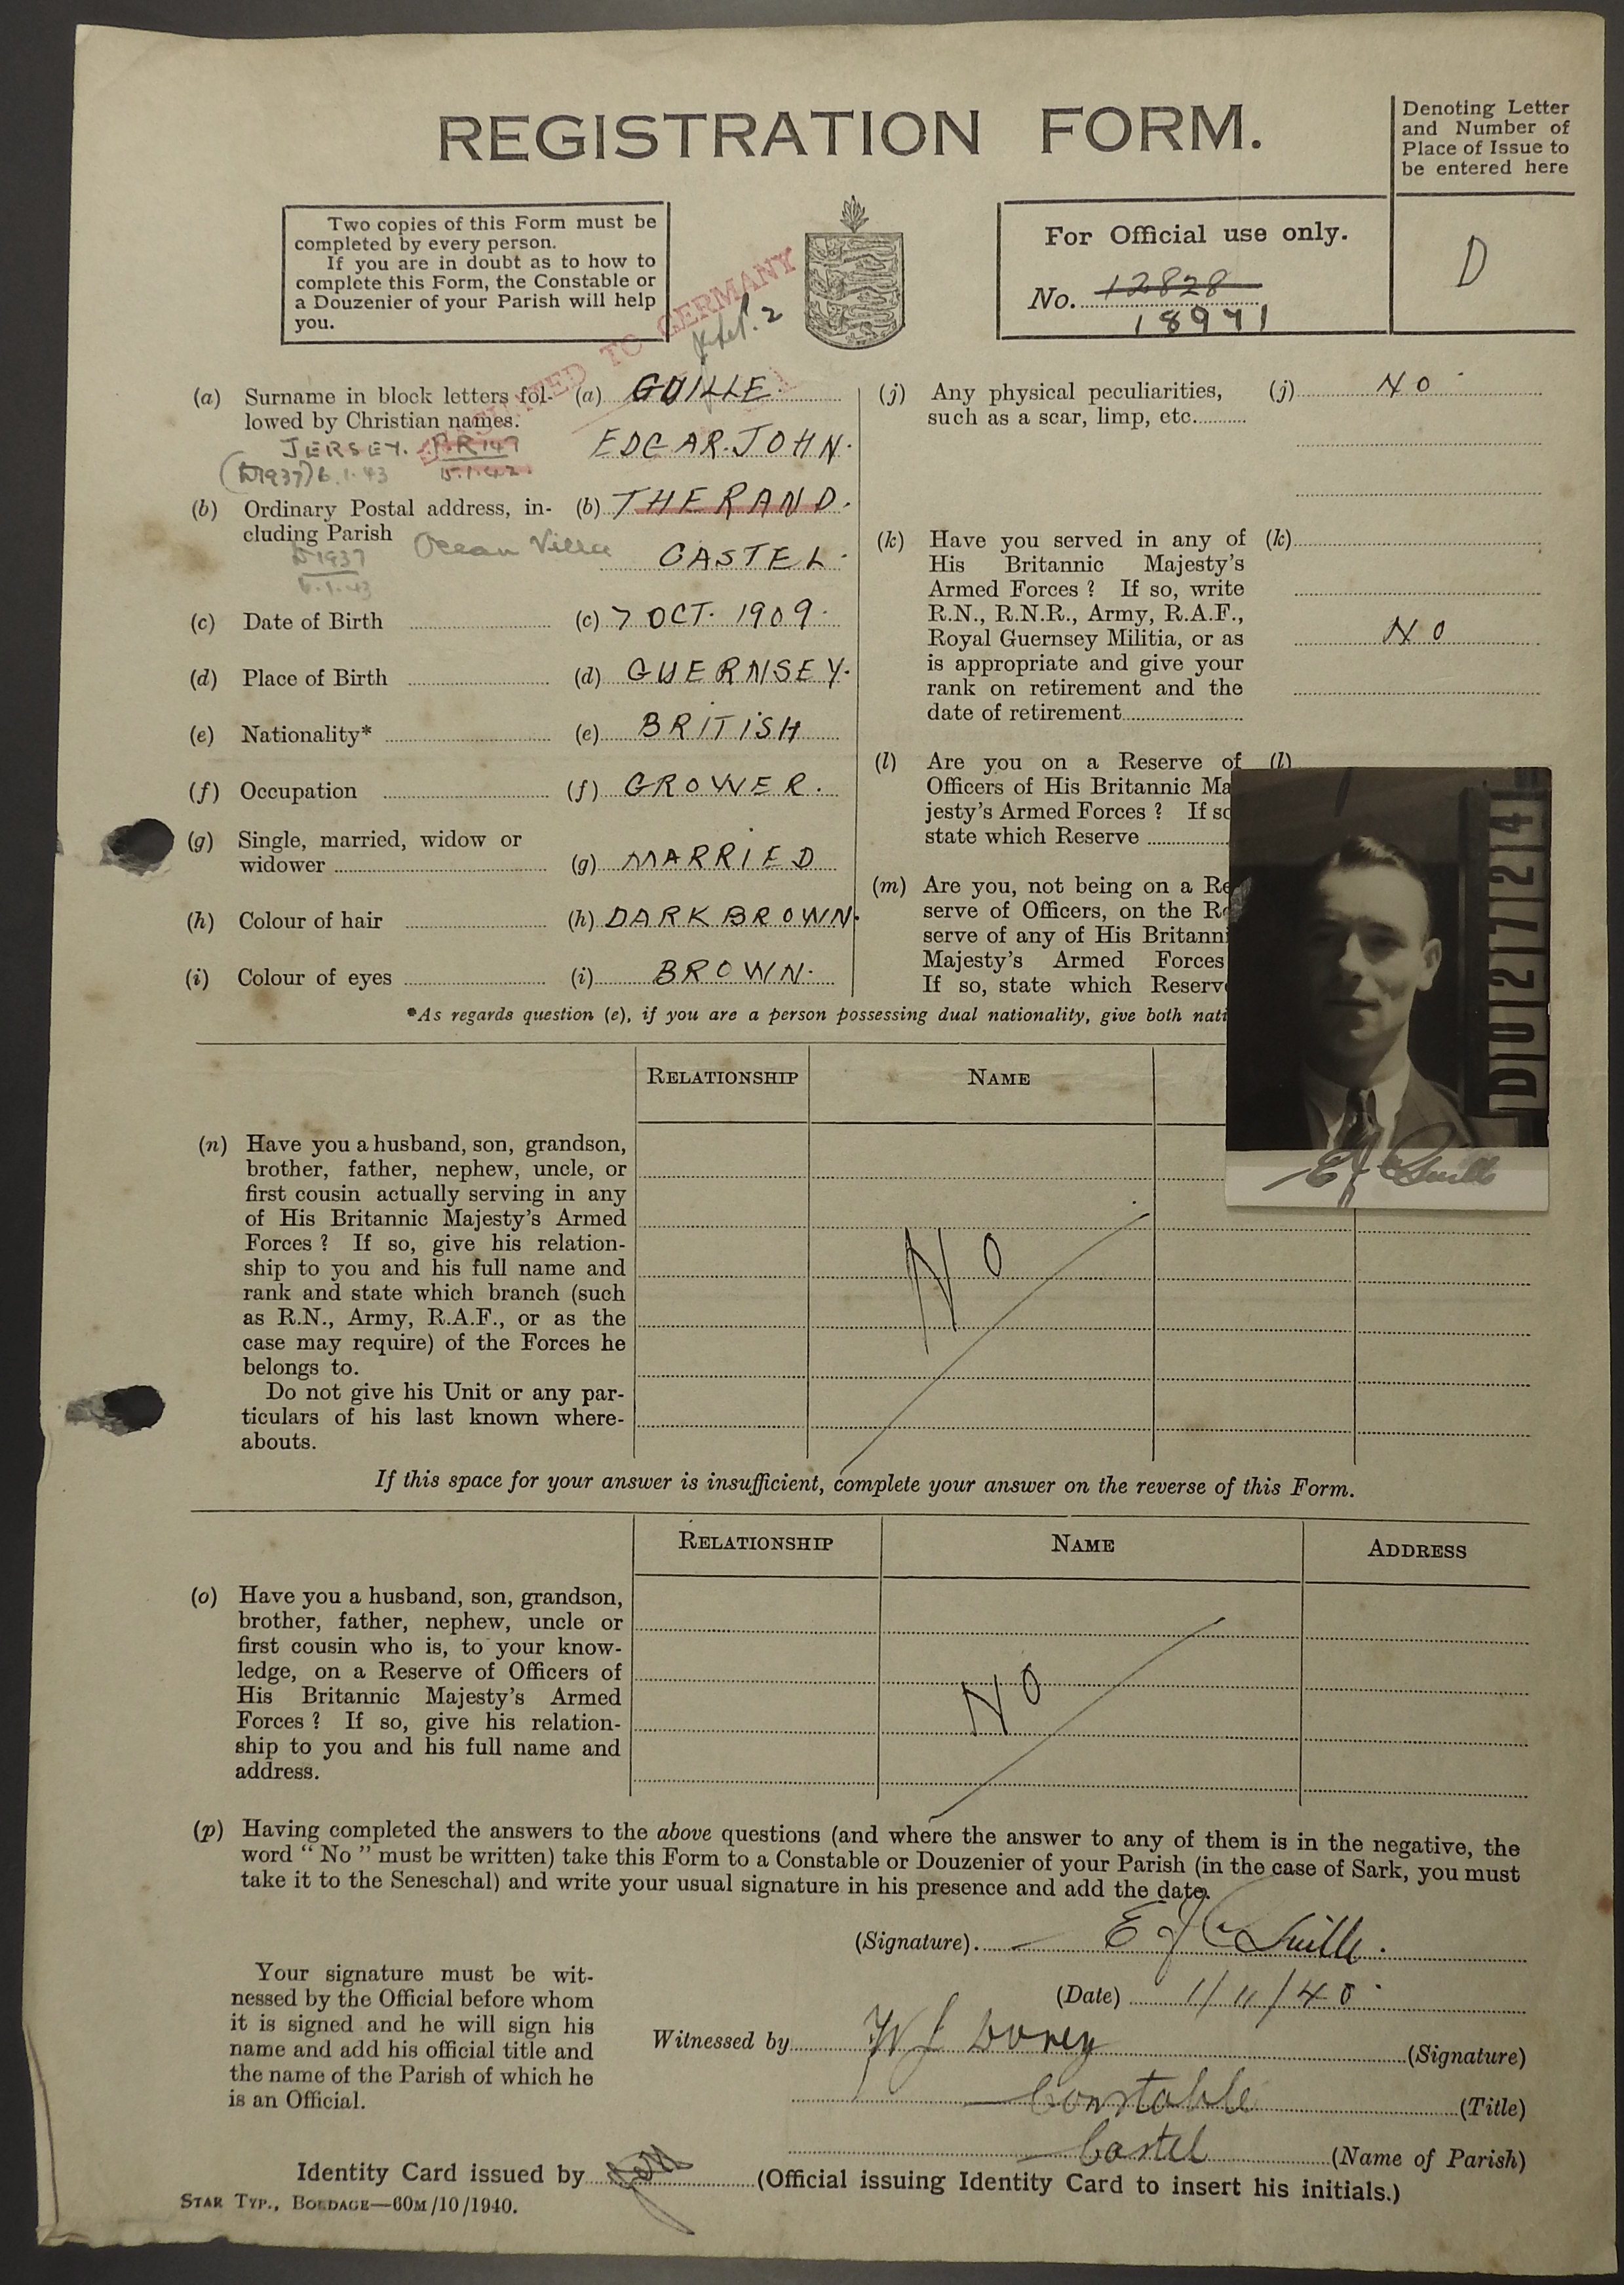 REGISTRATION FORM.
Denoting Letter
and Number of
Place of Issue to
be entered here
D
Two copies of this Form must be
completed by every person.
If you are in doubt as to how to
complete this Form, the Constable or
a Douzenier of your Parish will help
you.
TO GERMANY
2
For Official use only.
No. 12828
18971
(a) Surname in block letters fol-
lowed by Christian names.
(a) GUILLE
EDGAR. JOHN.
JERSEY.
(D1937) 6.1.43
15.1.42.
(b) Ordinary Postal address, in-
cluding Parish
(b) THE RAND.
Ocean Villa
CASTEL.
D1937
6.1.43
(c) Date of Birth
(c) 7 OCT. 1909.
(d) Place of Birth
(d) GUERNSEY.
(e) Nationality*
(e) BRITISH
(f) Occupation
(f) GROWER.
(g) Single, married, widow or
widower
(g) MARRIED
(h) Colour of hair
(h) DARK BROWN.
(i) Colour of eyes
(i) BROWN.
(j) Any physical peculiarities,
such as a scar, limp, etc.
(j) NO
(k) Have you served in any of
His Britannic Majesty's
Armed Forces ? If so, write
R.N., R.N.R., Army, R.A.F.,
Royal Guernsey Militia, or as
is appropriate and give your
rank on retirement and the
date of retirement
(k)
NO
(l) Are you on a Reserve of
Officers of His Britannic Ma
jesty's Armed Forces ? If so
state which Reserve
(l)
(m) Are you, not being on a Re
serve of Officers, on the Re
serve of any of His Britanni
Majesty's Armed Forces
If so, state which Reserve
DU27724
E J C Guille
*As regards question (e), if you are a person possessing dual nationality, give both nati
RELATIONSHIP
NAME
(n) Have you a husband, son, grandson,
brother, father, nephew, uncle, or
first cousin actually serving in any
of His Britannic Majesty's Armed
Forces ? If so, give his relation-
ship to you and his full name and
rank and state which branch (such
as R.N., Army, R.A.F., or as the
case may require) of the Forces he
belongs to.
Do not give his Unit or any par-
ticulars of his last known where-
abouts.
NO
If this space for your answer is insufficient, complete your answer on the reverse of this Form.
RELATIONSHIP
NAME
ADDRESS
(o) Have you a husband, son, grandson,
brother, father, nephew, uncle or
first cousin who is, to your know-
ledge, on a Reserve of Officers of
His Britannic Majesty's Armed
Forces ? If so, give his relation-
ship to you and his full name and
address.
NO
(p) Having completed the answers to the above questions (and where the answer to any of them is in the negative, the
word " No " must be written) take this Form to a Constable or Douzenier of your Parish (in the case of Sark, you must
take it to the Seneschal) and write your usual signature in his presence and add the date.
(Signature) E J C Guille.
(Date) 1/11/40
Your signature must be wit-
nessed by the Official before whom
it is signed and he will sign his
name and add his official title and
the name of the Parish of which he
is an Official.
Witnessed by W J Dorey (Signature)
Constable (Title)
Castel (Name of Parish)
Identity Card issued by (Official issuing Identity Card to insert his initials.)
STAR TYP., BORDAGE—60M/10/1940.